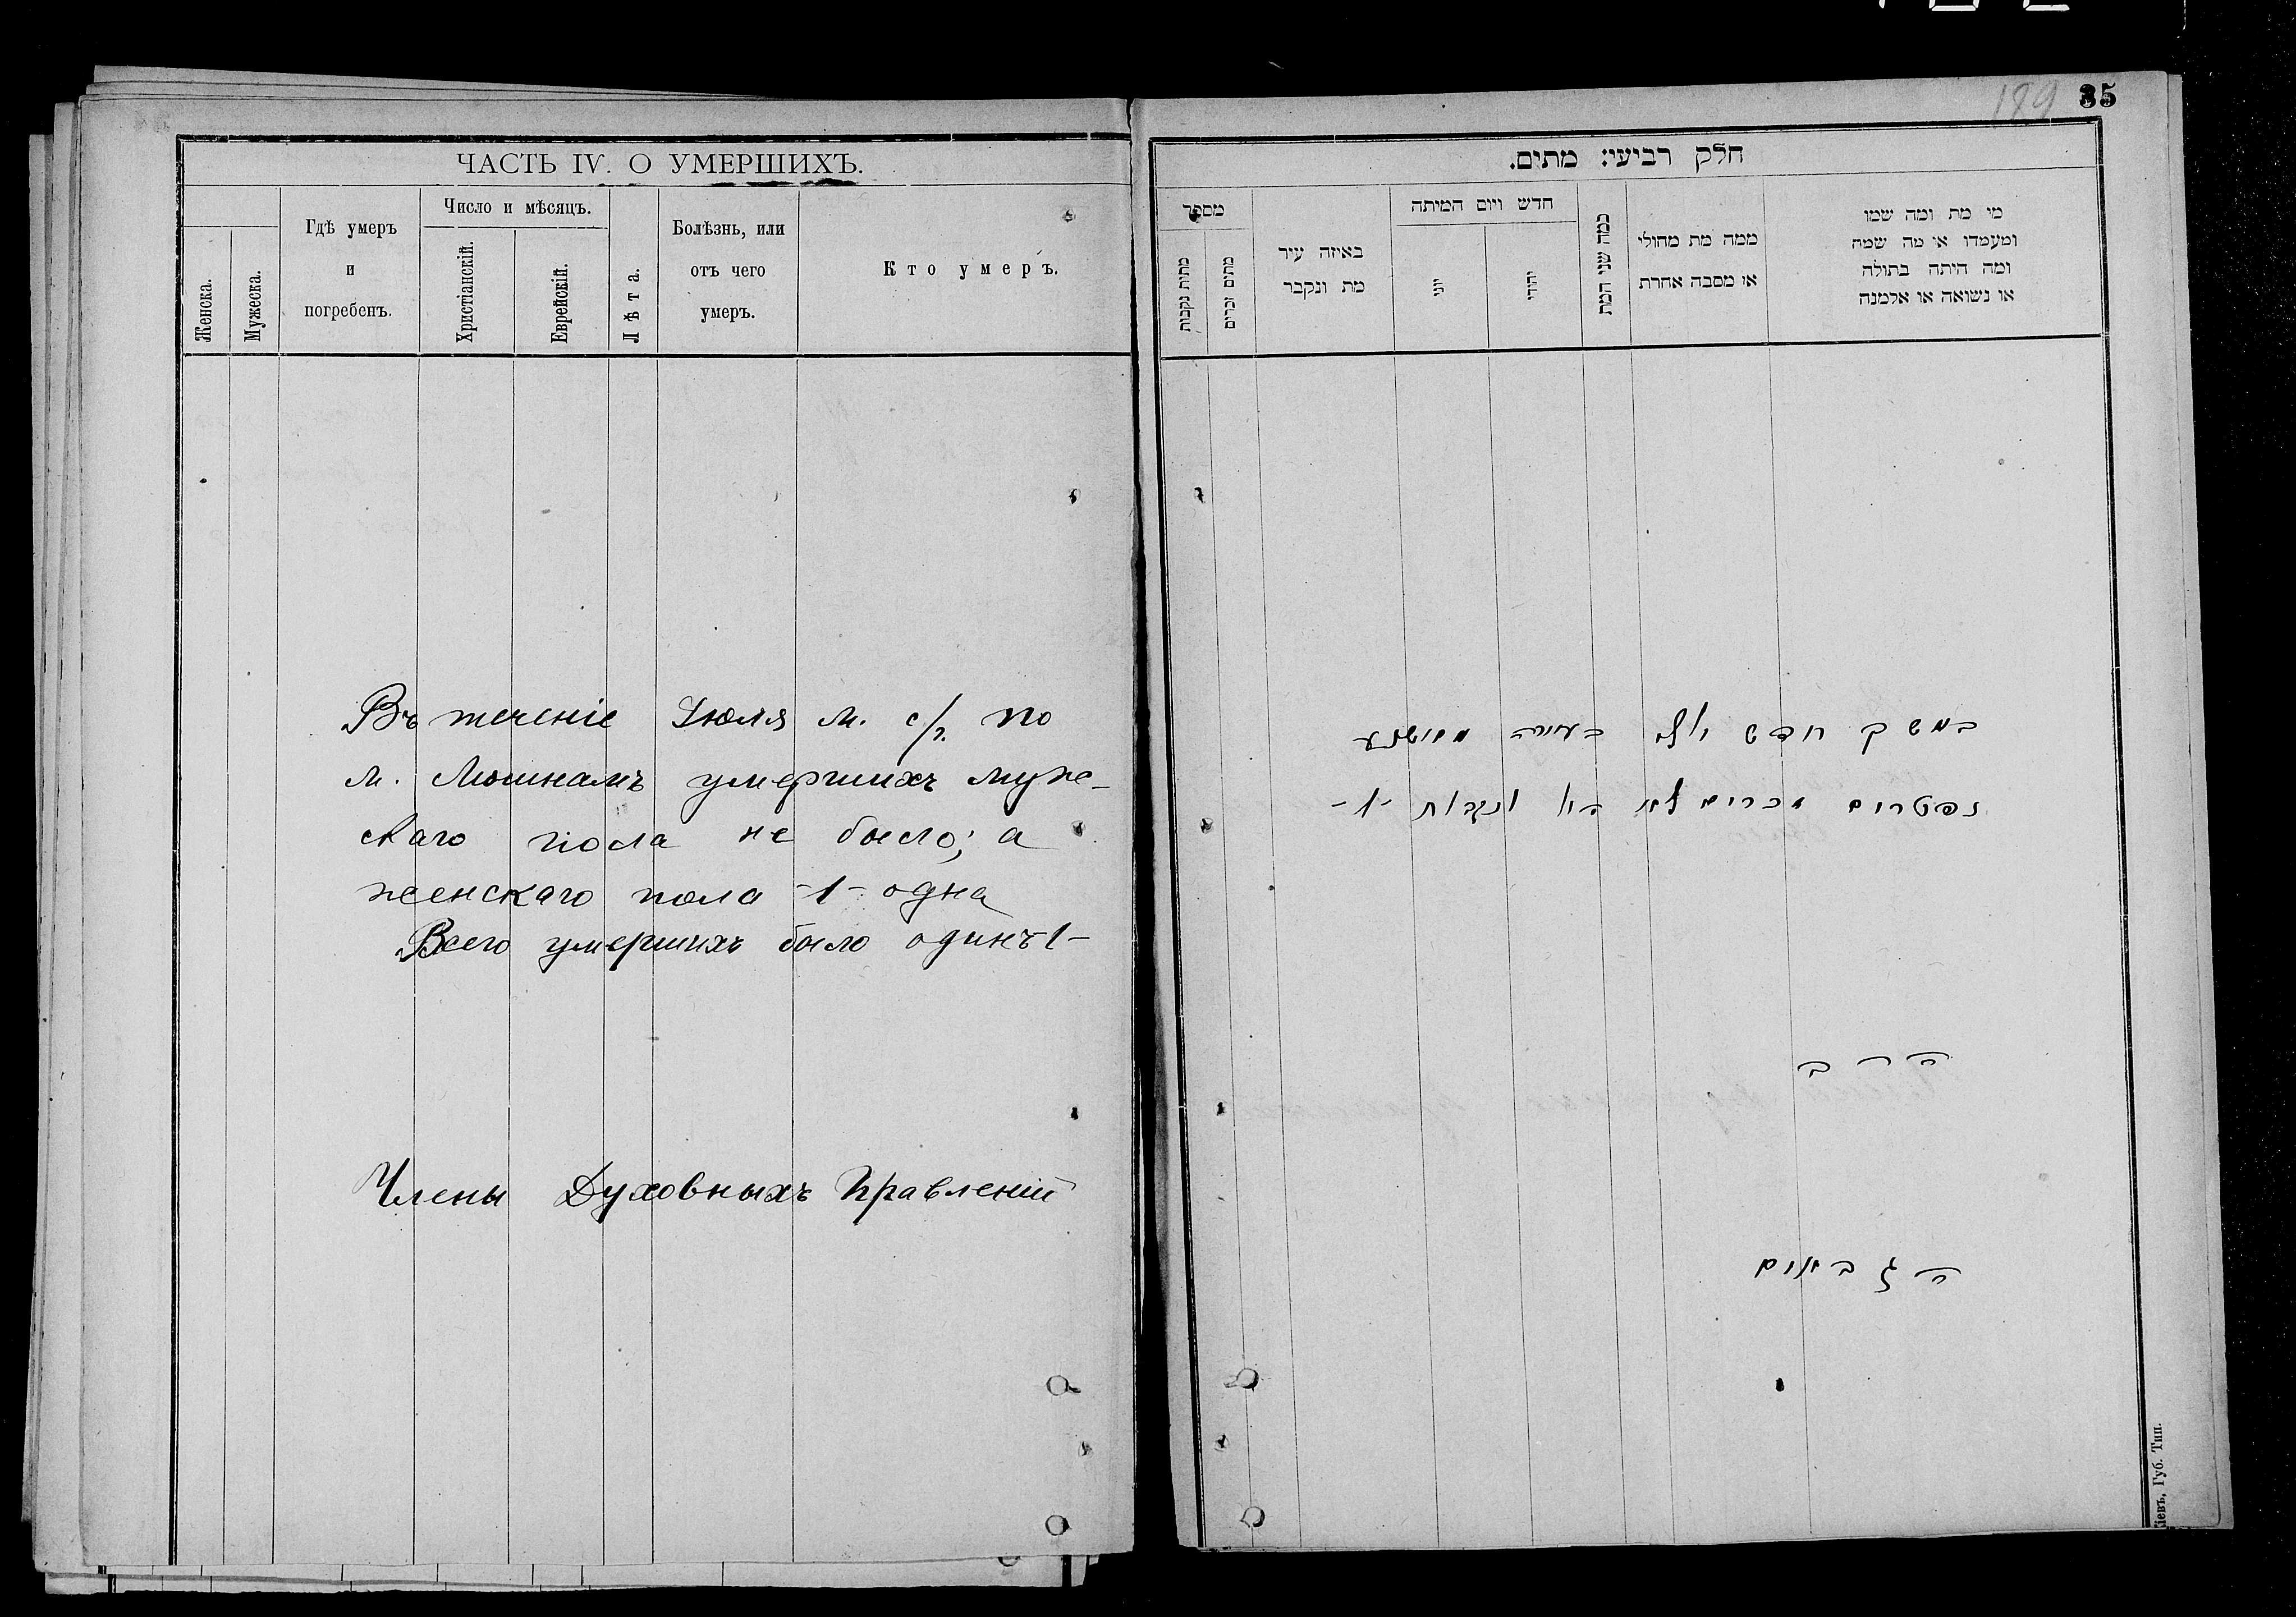 189 35
ЧАСТЬ IV. О УМЕРШИХЪ.
Женска.
Мужеска.
Гдѣ умеръ
и
погребенъ.
Число и мѣсяцъ.
Христіанскій.
Еврейскій.
Лѣта.
Болѣзнь, или
отъ чего
умеръ.
Кто умеръ.
Въ теченіе Іюля м. с/г. по
м. умершихъ муже-
скаго пола не было; а
женскаго пола -1- одна
Всего умершихъ было одинъ 1-
Члены Духовныхъ Правленій
חלק רביעי: מתים.
מספר
מתות נקבות
מתים זכרים
באיזה עיר
מת ונקבר
חדש ויום המיתה
יוני
יהודי
כמה שני המת
ממה מת מחולי
או מסבה אחרת
מי מת ומה שמו
ומעמדו או מה שמה
ומה היתה בתולה
או נשואה או אלמנה
במשך חדש יולי בעירה
נפטרים זכרים לא היו ונקבות -1-
הרב
הגבאים
Кіевъ, Губ. Тип.